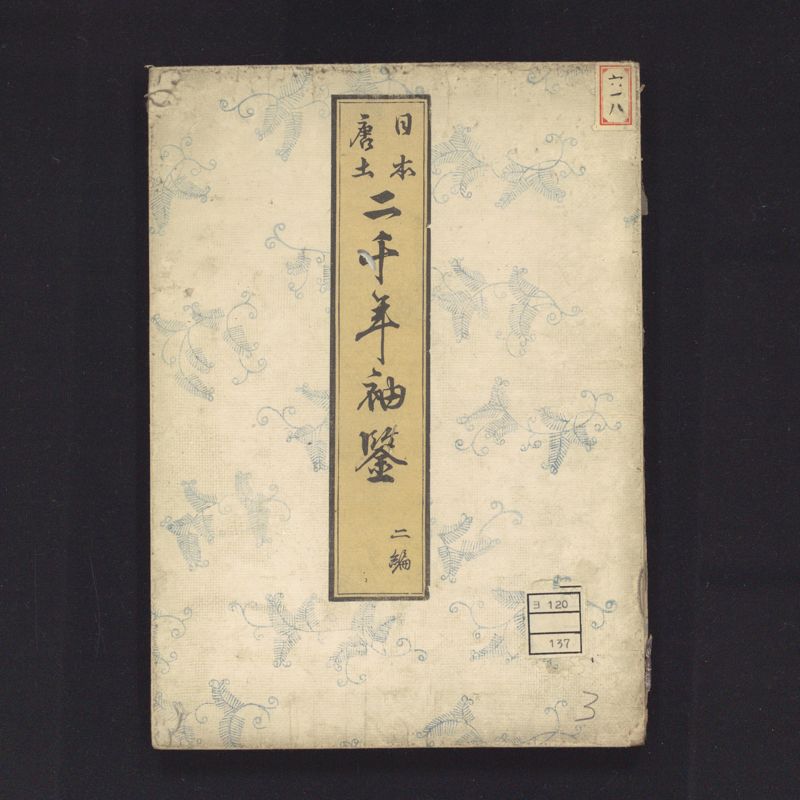 日本
唐土
二千年袖鑒
二編
六一八
ヨ 120
137
3